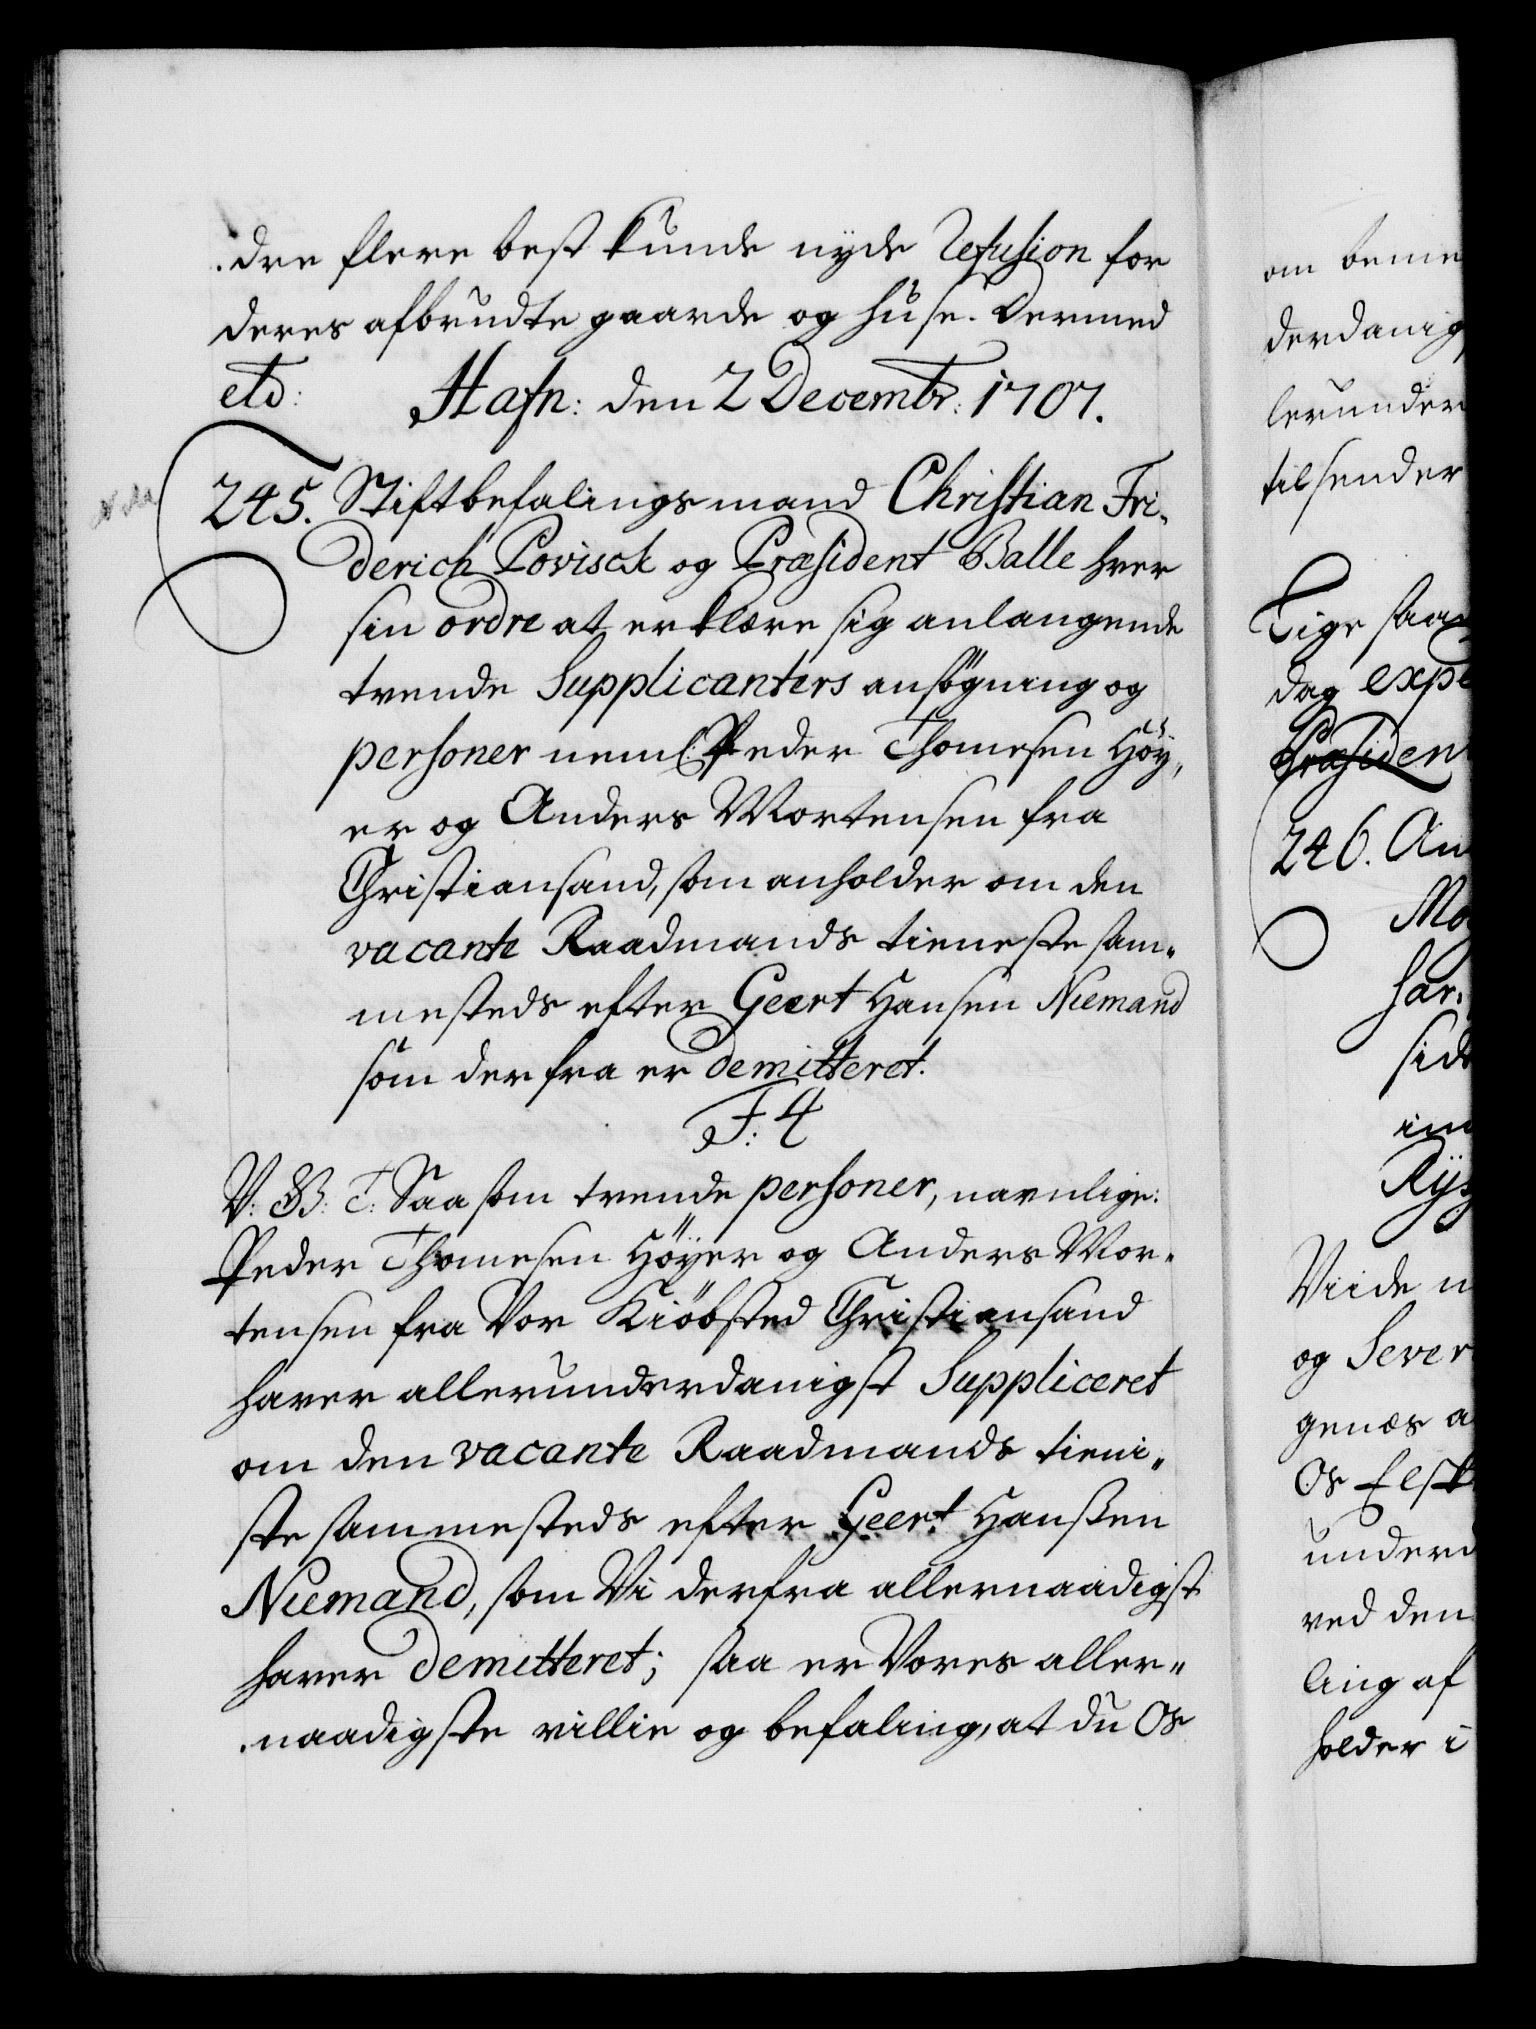 dre flere best kunde nyde Refusion for
deres afbrudte gaarde og huse. Dermed
etc: Hafn: den 2 Decembr: 1707.
245. Stiftbefalings mand Christian Fri-
derich Povisck og Præsident Balle hver
sin ordre at erklære sig anlangende
trende Supplicanters ansøgning og
personer neml: Peder Thomesen Höy,
er og Anders Mortensen fra
Christiansand, som anholder om den
vacante Raadmands tieneste sam-
mesteds efter Geert Hansen Niemand
som der fra er demitteret.
F: 4
V: G: T: Saa som trende personer, navnlig:
Peder Thomesen Höyer og Anders Mor-
tensen fra Vor Kiöbsted Christiansand
haver allerunderdanigst Suppliceret
om den vacante Raadmands tieni-
ste sammesteds efter Geert Hanßen
Niemand, som Vi derfra allernaadigst
haver demitteret; saa er Vores aller-
naadigste villie og befaling, at du Os
om beme
derdanig
lerunder
tilsender
Lige saa
dag expe
Præsiden
246. An
Mo
har
sid
im
Rys
Viide n
og Sever
genæs a
Os Elsk
underd
ved den
ling af
holder i